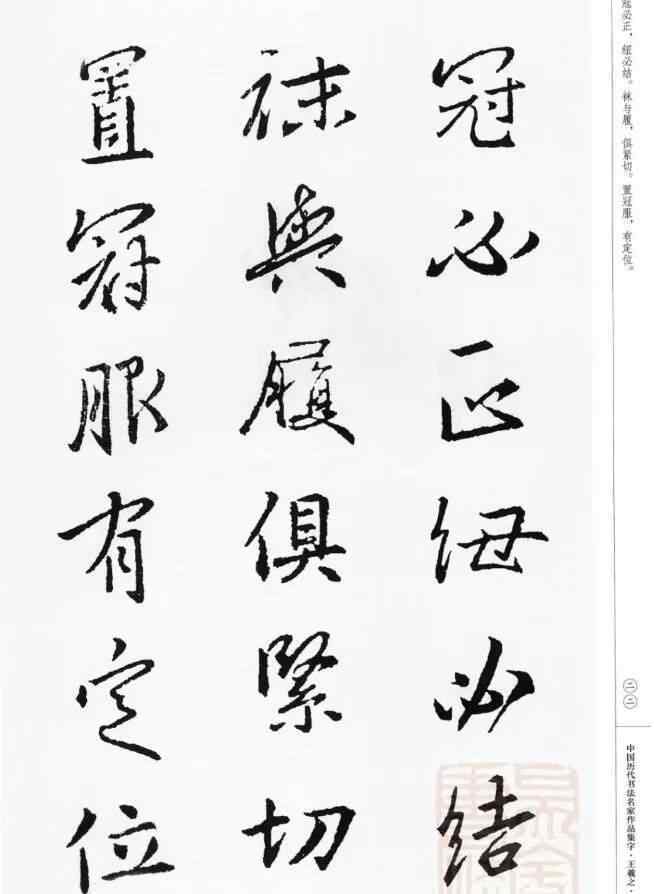 冠必正紐必結
袜與履俱緊切
置冠服有定位
冠必正，纽必结。袜与履，俱紧切。置冠服，有定位。
二二
中国历代书法名家作品集字·王羲之·